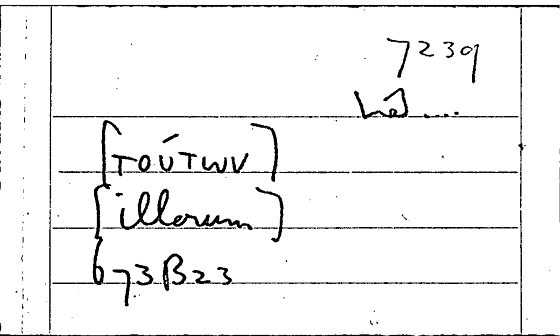 7239
[τούτων]
[illorum]
673B23